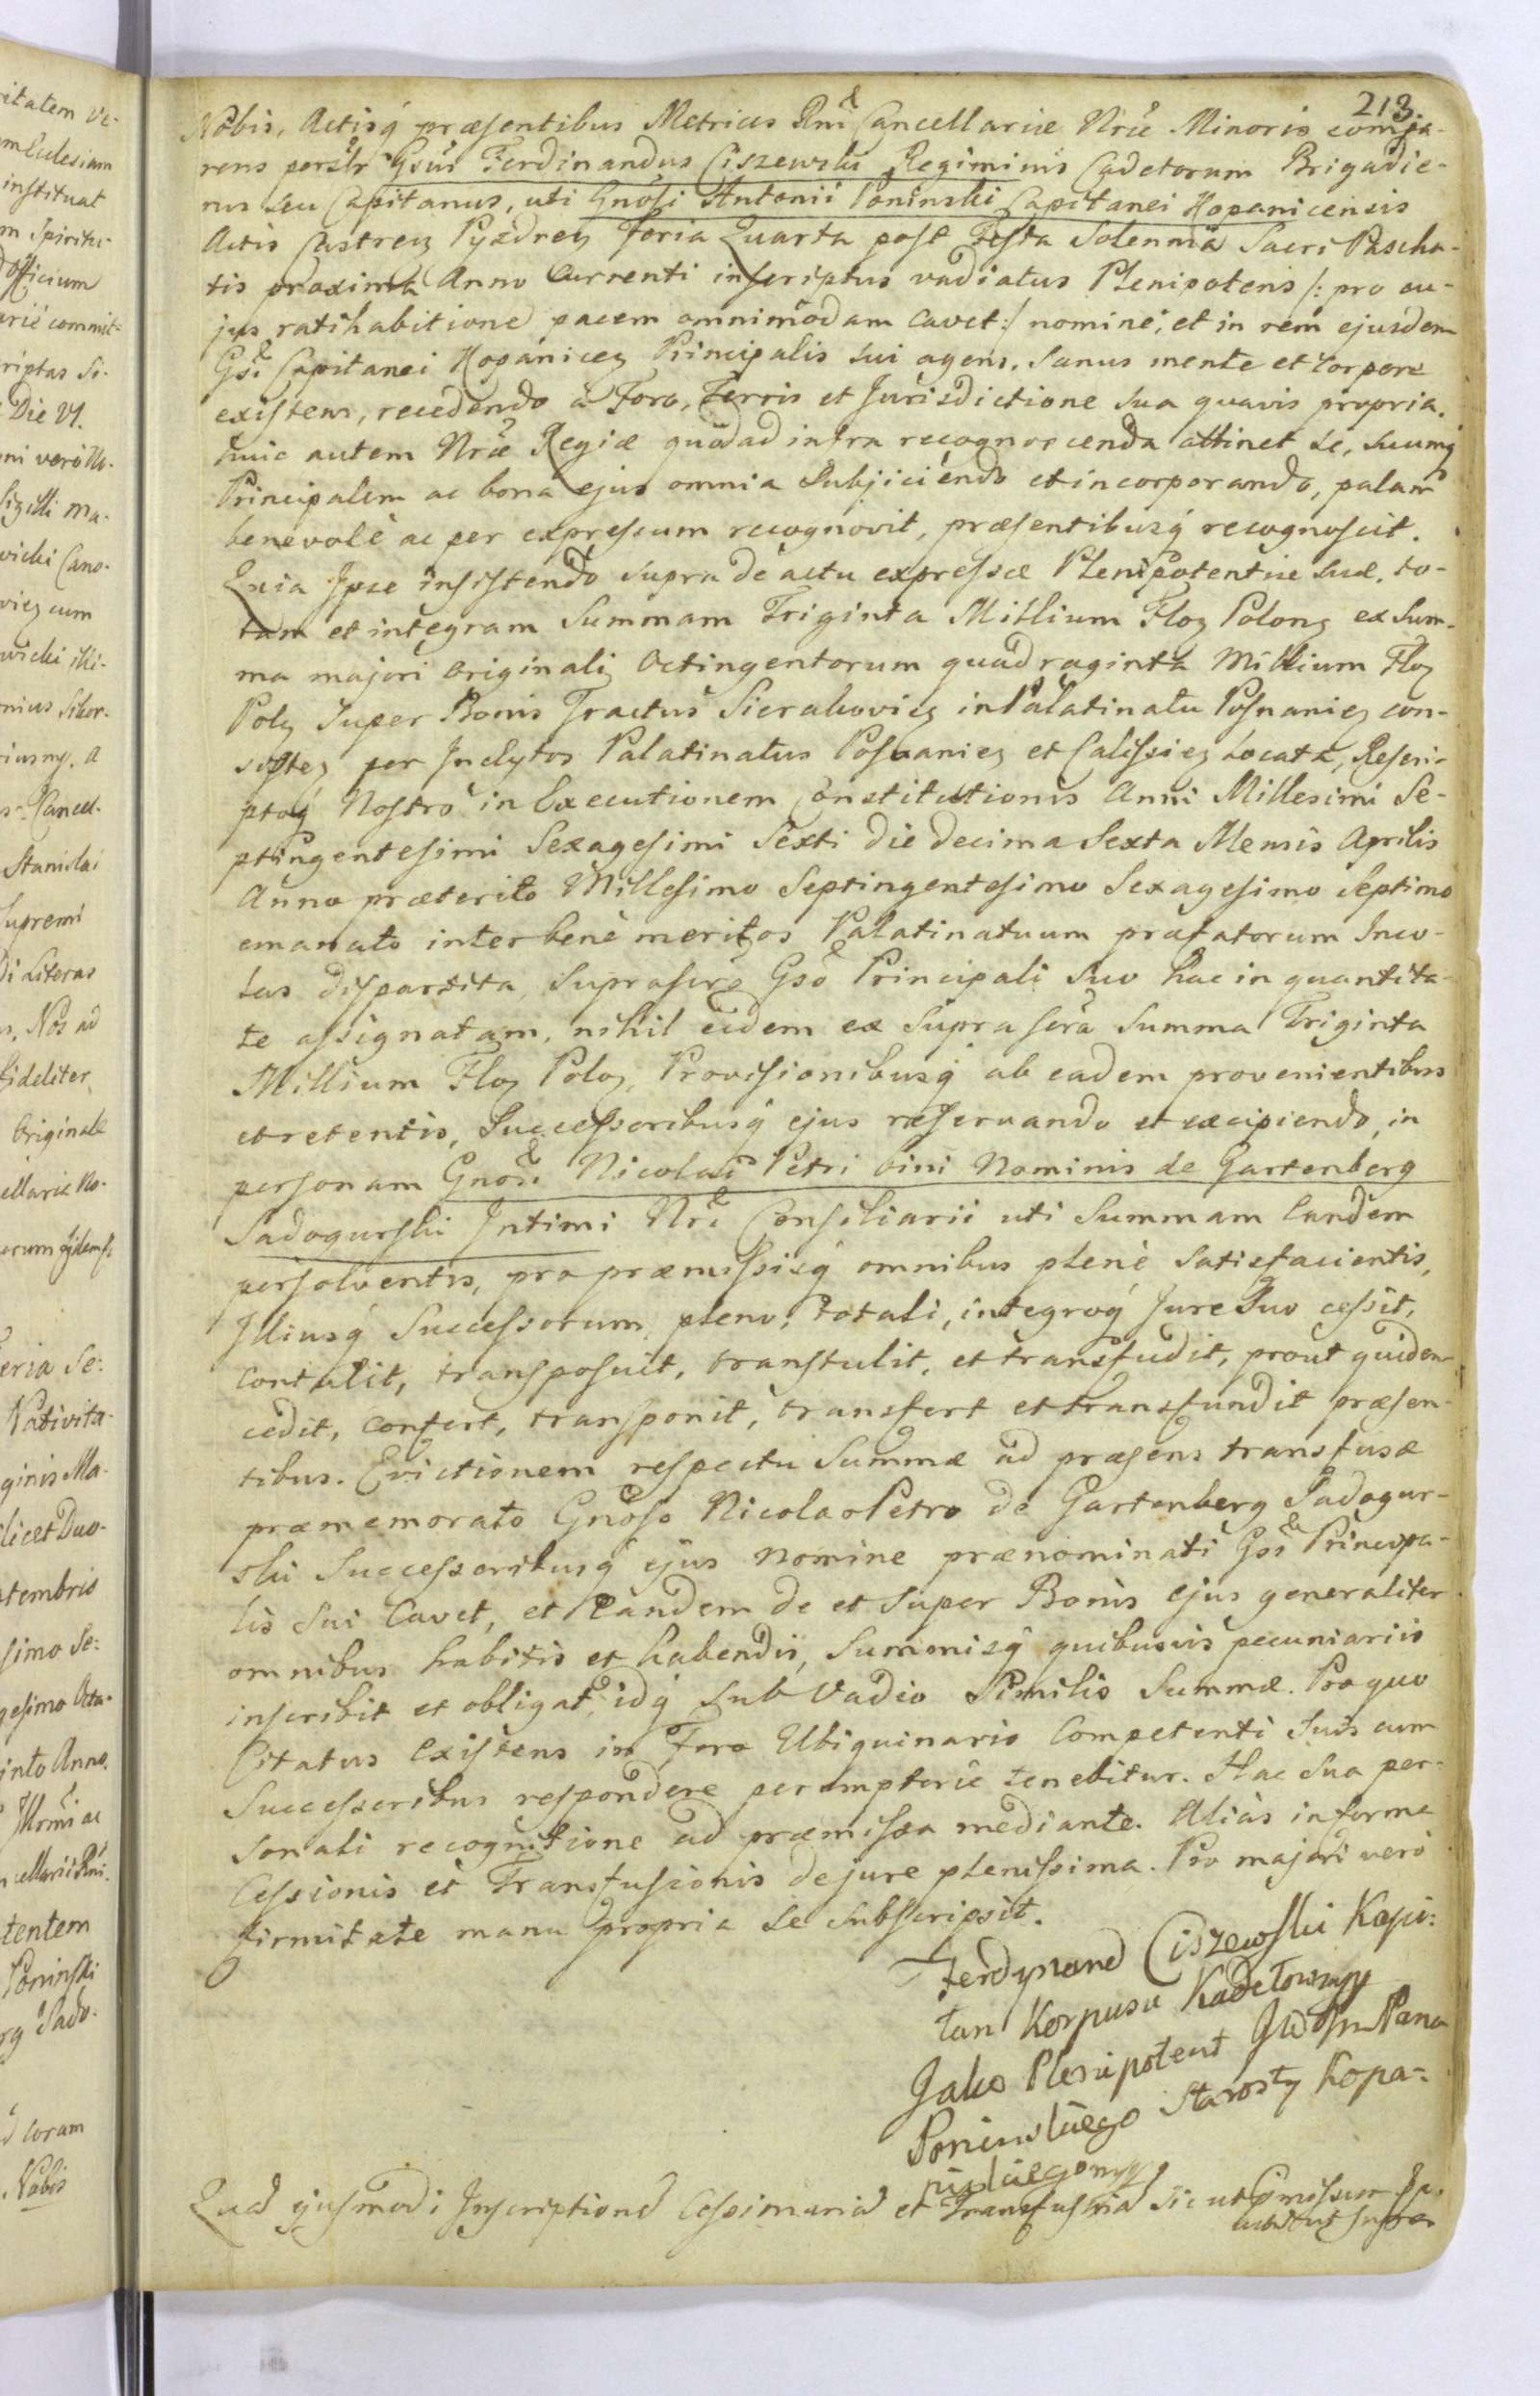 itatem Ve-
m Eclesiam
instituat
m Spiritu-
officium
arie commit-
riptas Si-
Die VI.
ni vero No-
Sigilli ma-
vicki Cano-
cum
wicki
nius Sikor-
a
Cancel-
Stanislai
Supremi
Literas
Nos ad
fideliter
Originale
ellariæ No-
orum
eria Se-
Nativita-
ginis Ma-
licet Duo-
tembris
simo Se-
gesimo Octa-
into Anno
ac
tentem
Poninski
rg Sado-
coram
Nobis
213.
Nobis, Actisq præsentibus Metrices Rni Cancellariæ Nræ Minoris compa-
rens personlr Gsus Ferdinandus Ciszewski Regiminis Cadetorum Brigadie-
rus seu Capitanus, uti Gnosi Antonii Poninski Capitanei Kopanicensis
Actis Castren Pyzdren Feria Quarta post Festa Solenniä Sacri Pascha-
tis proxima Anno Currenti inscriptus vadiatus Plenipotens /: pro cu-
jus ratihabitione pacem omnimodam cavet :/ nomine, et in rem ejusdem
Gsi Capitanei Kopanicen Principalis sui agens. Sanus mente et corpore
existens, recedendo à Foro, Terris et Jurisdictione sua quavis propria.
huic autem Nræ Regiæ quoad infra recognoscenda attinet se, suumq
Principalem ac bona ejus omnia Subjiciendo et incorporando, palam
benevolè ac per expressum recognovit, præsentibusq recognoscit.
Quia Ipse insistendo supra de actu expressæ Plenipotentiæ suæ, to-
tam et integram Summam Triginta Millium Flor Polon ex Sum-
ma majori originali Octingentorum quadraginta Millium Flor
Pol Super Bonis Tractus Sierakovien in Palatinatu Posnanien con-
sisten per Inclytos Palatinatus Posnanien et Calissien Locata, Rescri-
ptoq Nostro in Executionem Constitutionis Anni Millesimi Se-
ptingentesimi Sexagesimi Sexti die decima Sexta Mensis Aprilis
Anno præterito Millesimo Septingentesimo Sexagesimo Septimo
emanato inter bene meritos Palatinatuum præfatorum Inco-
las dispartita, Suprascr Gso Principali Suo hac in quantita-
te assignatam, nihil eidem ex Suprascra Summa Triginta
Millium Flor Polon, Provisionibusq ab eadem provenientibus
et retentis, Successoribusq ejus reservando et excipiendo, in
personam Gnosi Nicolai Petri bini Nominis de Gartenberg
Sadogurski Intimi Nri Consiliarii uti Summam Eandem
persolventis, pro præmissisq omnibus plenè Satisfacientis,
Illiusq Successorum, pleno, totali, integroq Jure Suo cessit,
contulit, transposuit, transtulit, et transfudit, prout quidem
cedit, confert, transponit, transfert et transfundit præsen-
tibus. Evictionem respectu Summæ ad præsens transfusæ
præmemorato Gnoso Nicolao Petro de Gartenberg Sadogur-
ski Successoribusq ejus nomine prænominati Gsi Principa-
lis Sui Cavet, et Eandem de et super Bonis ejus generaliter
omnibus habitis et habendis, Summisq quibusvis pecuniariis
inscribit et obligat, idq sub Vadio Similis Summæ. Pro quo
Citatus Existens in Foro Ubiquinario Competenti Suis cum
Successoribus respondere peremptorie tenebitur. Hac Sua per-
sonali recognitione ad præmissa mediante. Aliàs in forma
Cessionis et Transfusionis de jure plenissima. Pro majori verò
firmitate manu propria se subscripsit.
Ferdynand Ciszewski Kapi-
tan Korpusu Kadetow mp
Jako Plenipotent Pana
Poninskiego Starosty Kopa-
nickiego mp
Quod ejusmodi Inscriptione Cessionaria et Transfusoria sicut